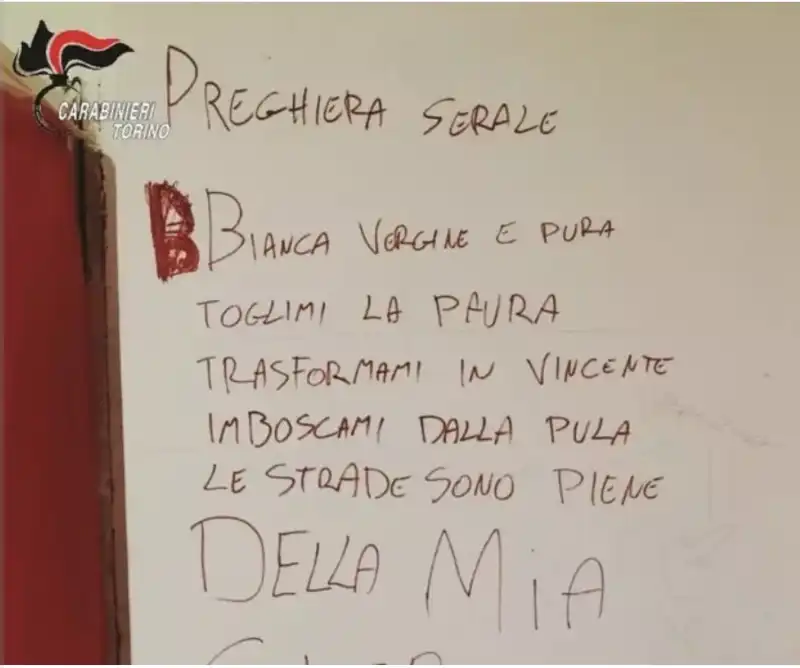 CARABINIERI
TORINO
PREGHIERA SERALE
B BIANCA VERGINE E PURA
TOGLIMI LA PAURA
TRASFORMAMI IN VINCENTE
IMBOSCAMI DALLA PULA
LE STRADE SONO PIENE
DELLA MIA